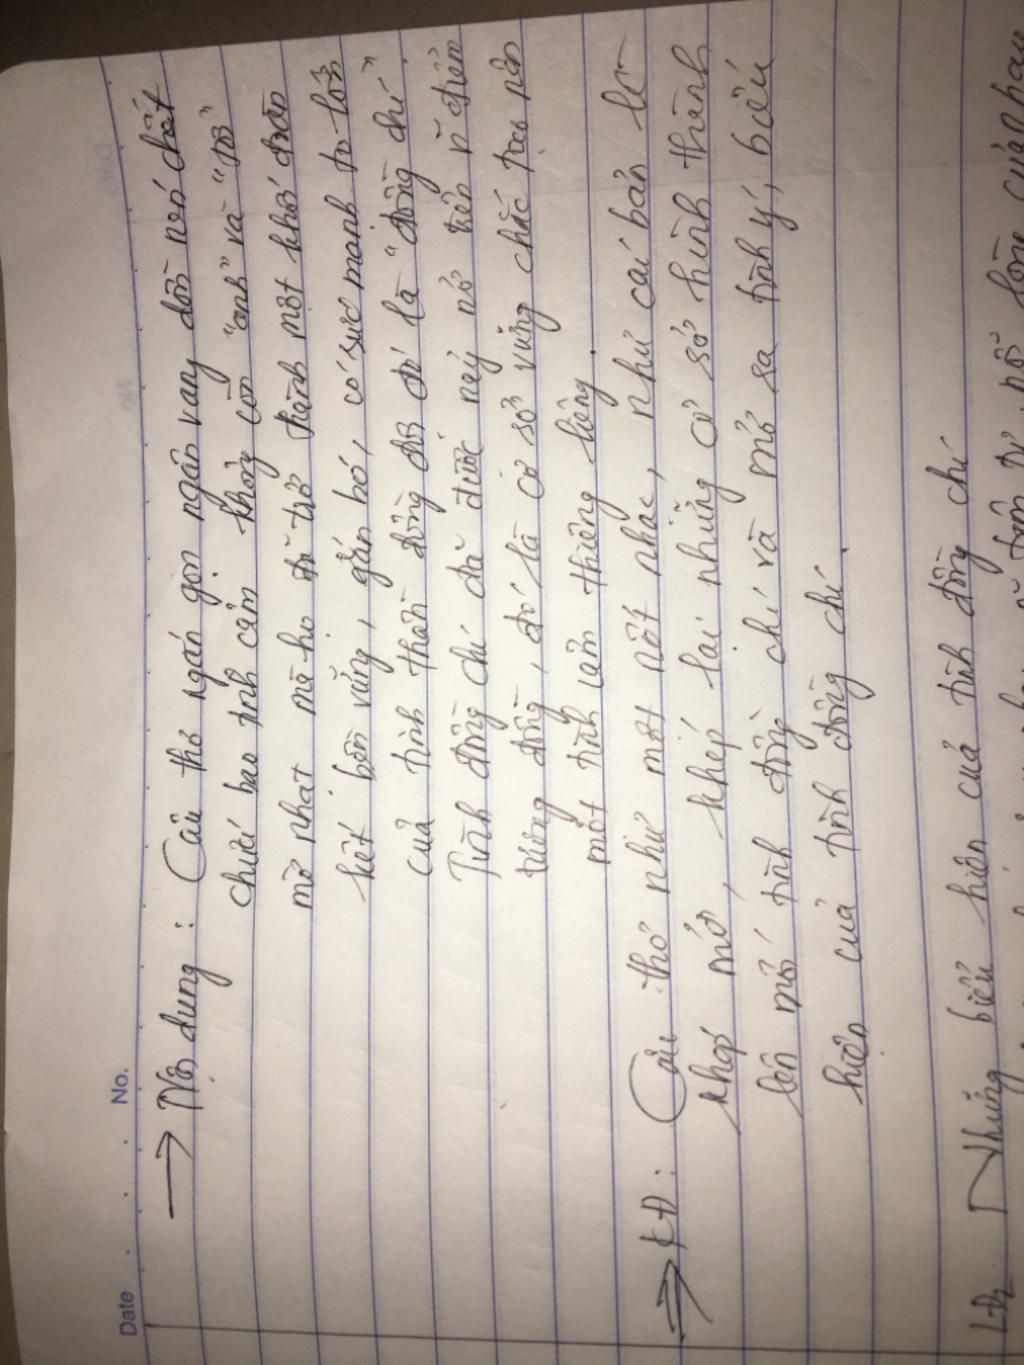 Date No.
→ Nội dung : Câu thơ ngắn gọn ngân vang dồn nén chất
chứa bao tình cảm không còn "anh" và "tôi"
mờ nhạt mà họ đã trở thành một khối đoàn
kết bền vững, gắn bó, có sức mạnh to lớn
của tình thần đồng đội đó là "đồng chí"
Tình đồng chí đã được nảy nở trên
tương đồng, đó là cơ sở vững chắc tạo nên
một tình cảm thiêng liêng.
⇒ KĐ : Câu thơ như một nốt nhạc, như cái bản lề
khép mở, khép lại những cơ sở hình thành
lên mở tình đồng chí và mở ra tình ý, biểu
hiện của tình đồng chí.
LĐ2: Những biểu hiện của tình đồng chí